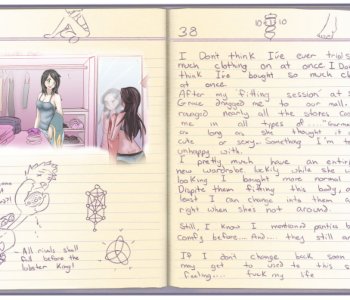 38
10 10
I Don't think I've ever tried
much clothing on at once. I Don't
think I've bought so much
at once.
After my fitting session at
Grace dragged me to our mall.
ranged nearly all the stores
me in all types of
as long as she thought it
cute or sexy... Something I'm
unhappy with.
I pretty much have an entire
new wardrobe luckily while she
looking I bought more normal
Dispite them fitting this body, a
least I can change into them a
right when shes not around.
Still, I know I mentioned panties
comfy before... and... they still are
If I don't change back soon
may get to used to this
feeling.... fuck my life
- All rivals shall
fall before the
lobster King!